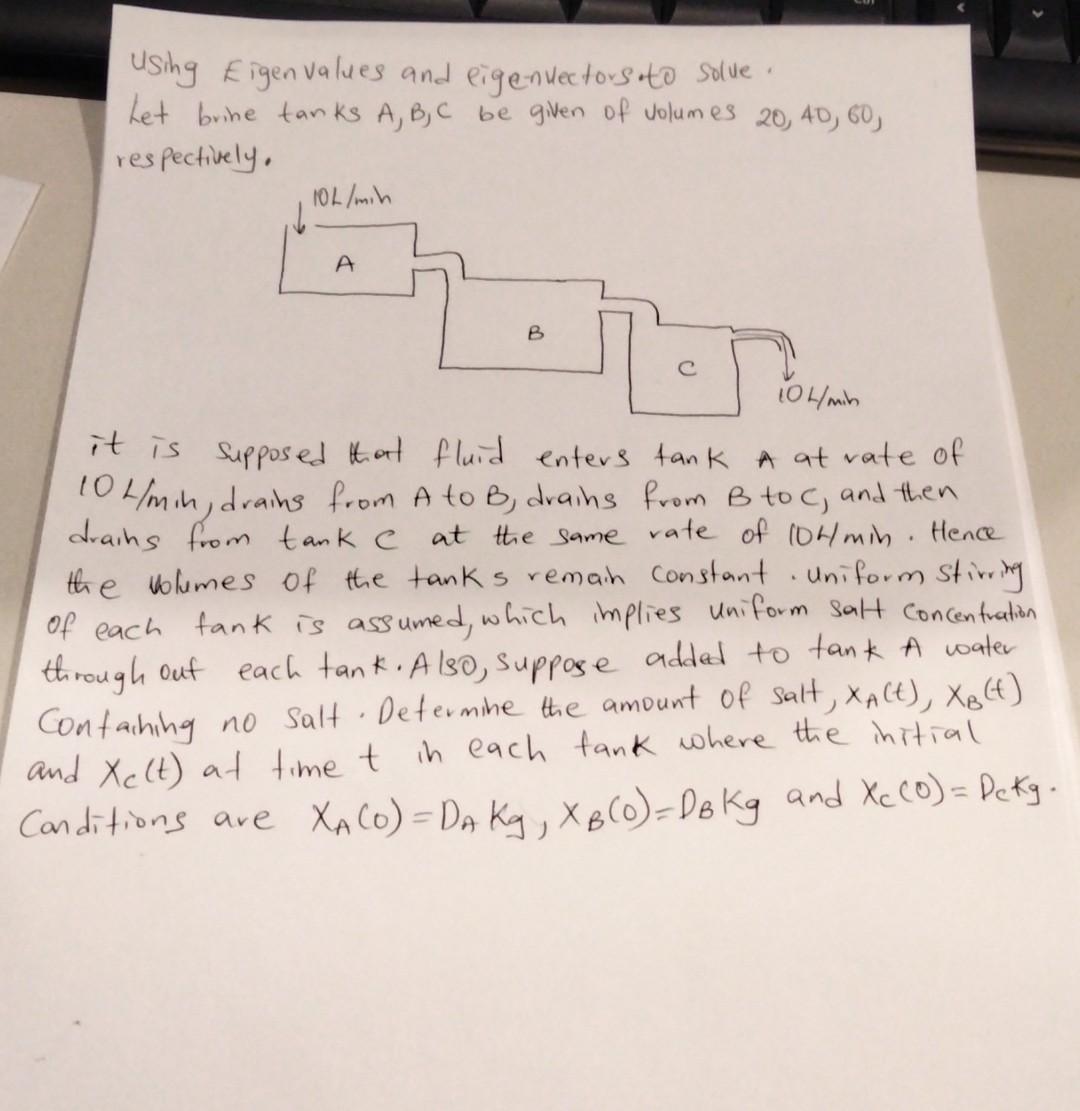 Using Eigenvalues and eigenvectors to solve.
Let brine tanks A, B, C be given of volumes 20, 40, 60,
respectively.
10L/min
A
B
C
10L/min
it is supposed that fluid enters tank A at rate of
10 L/min, drains from A to B, drains from B to C, and then
drains from tank C at the same rate of 10L/min. Hence
the volumes of the tanks remain constant. uniform stirring
of each tank is assumed, which implies uniform salt concentration
through out each tank. Also, suppose added to tank A water
containing no salt. Determine the amount of salt, XA(t), XB(t)
and Xc(t) at time t in each tank where the initial
Conditions are XA(0)=DA Kg, XB(0)=DB Kg and Xc(0)=Dc Kg.